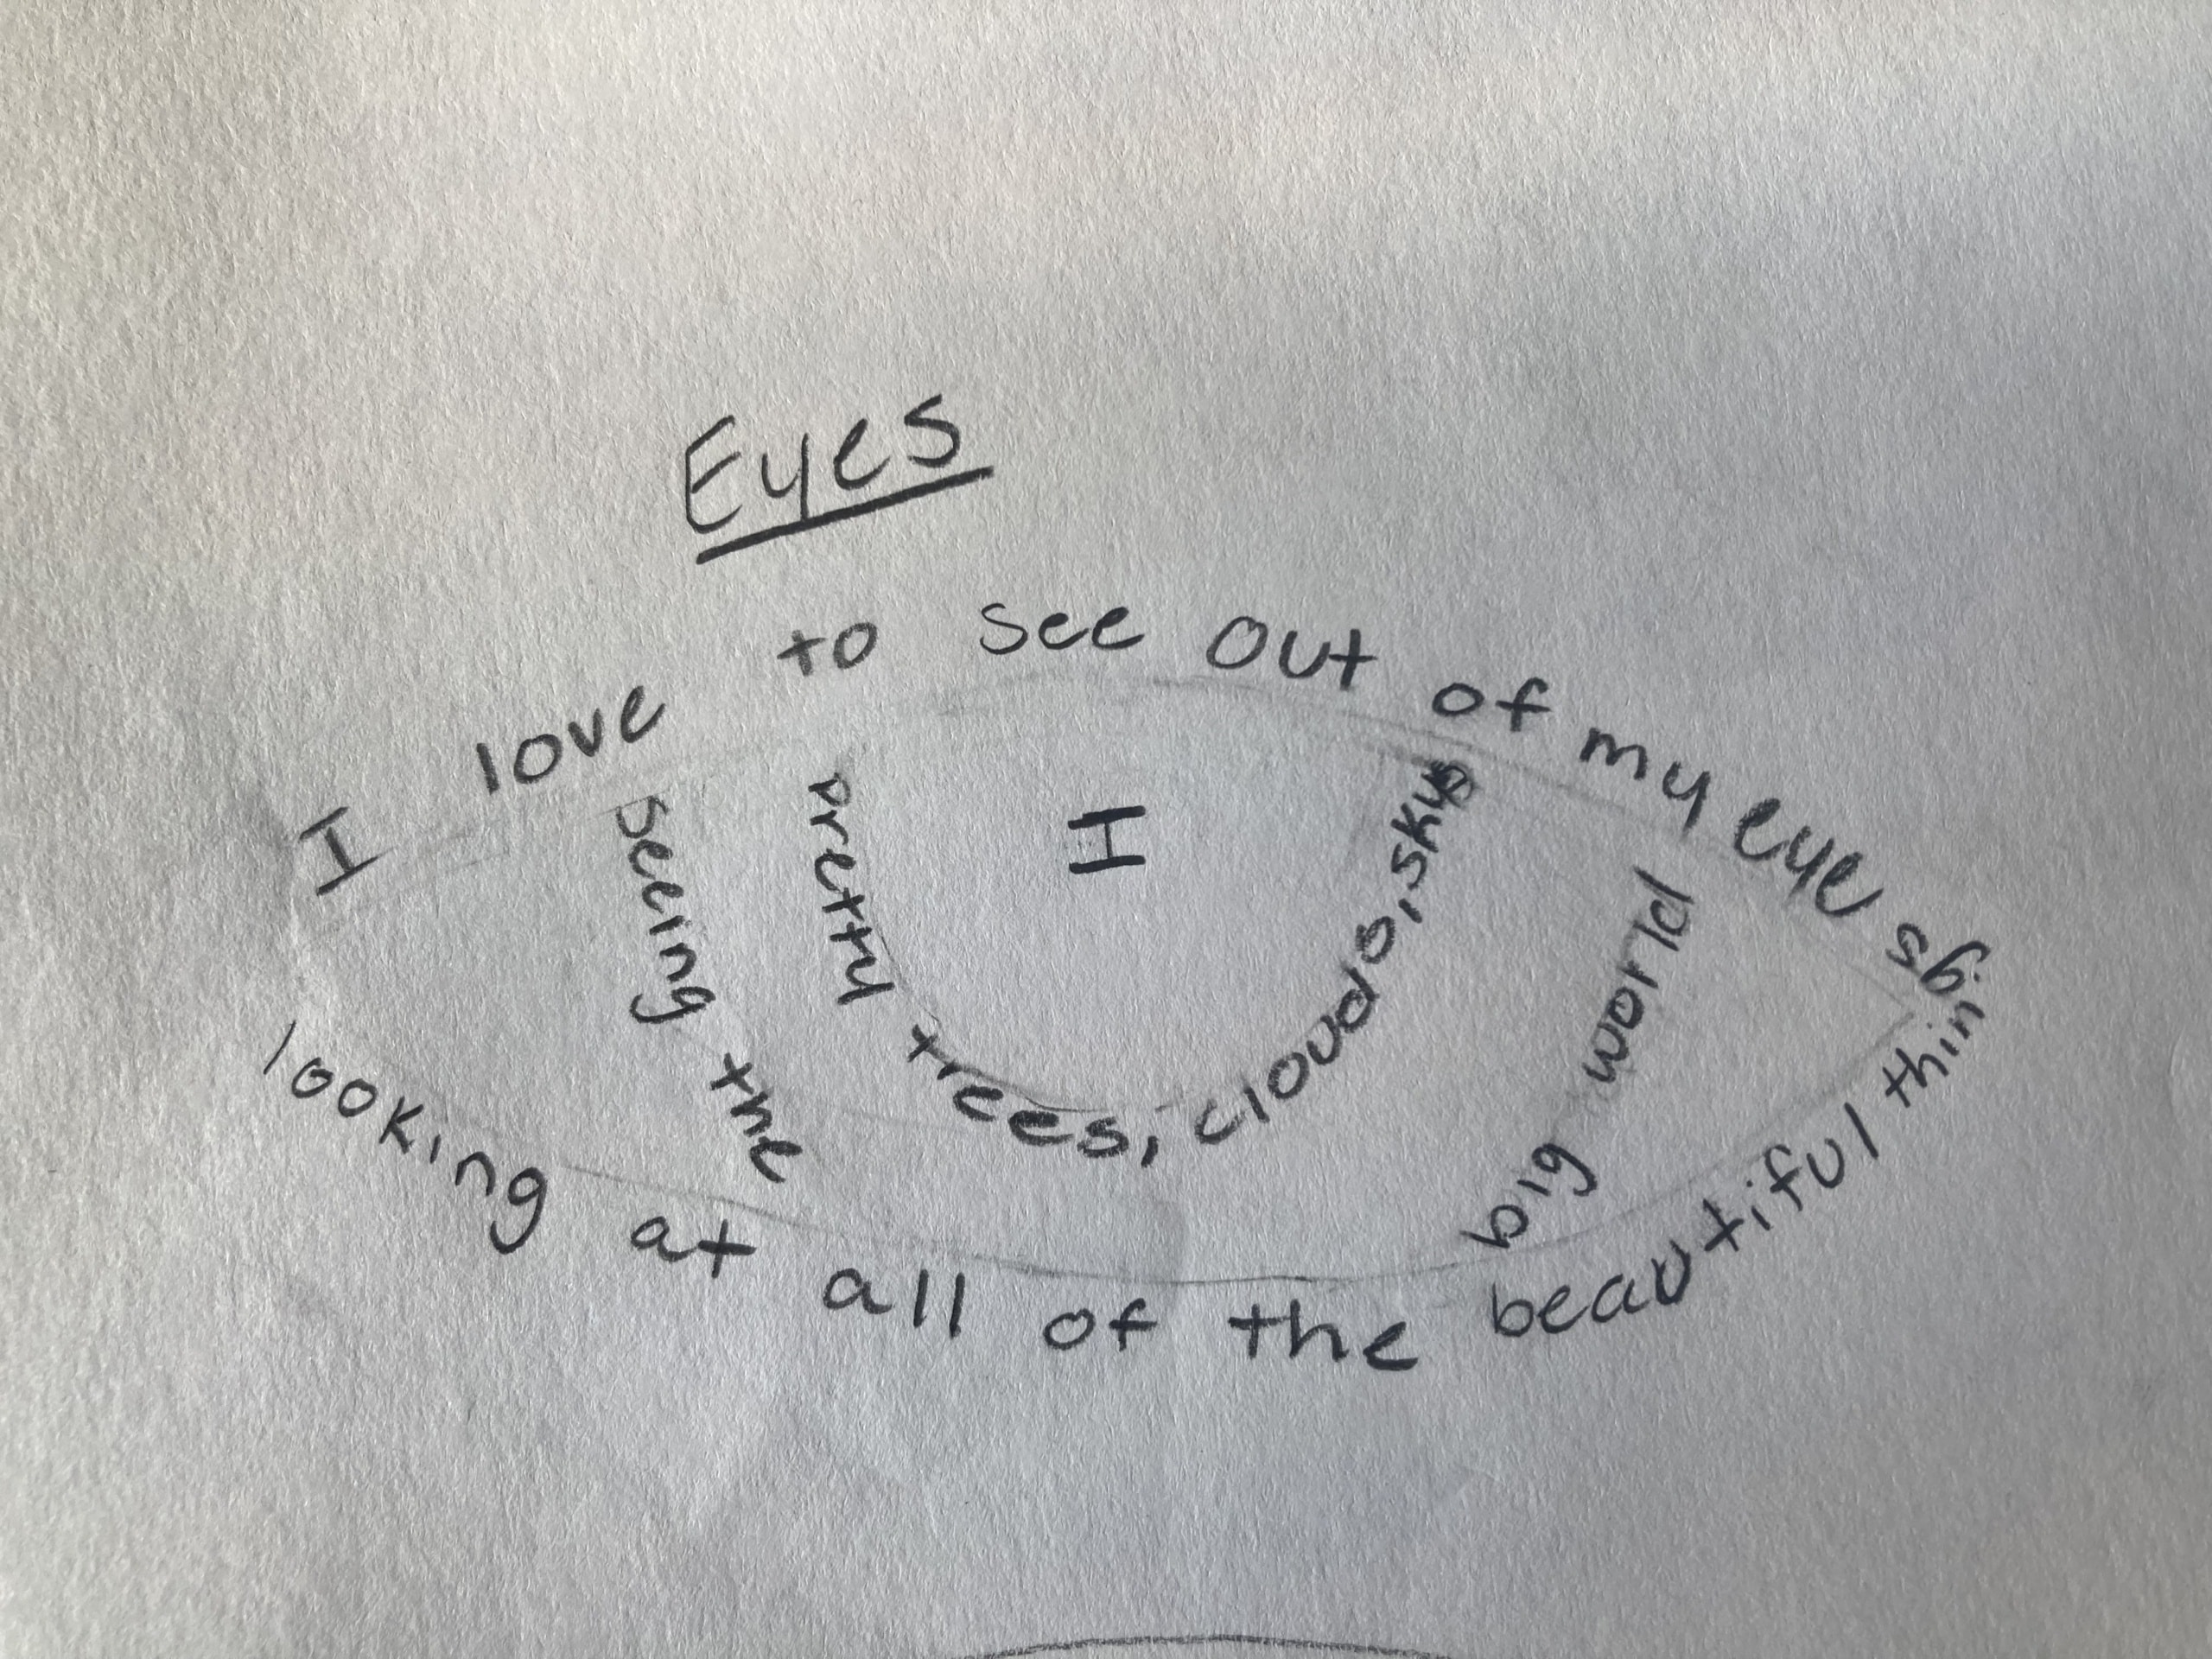 Eyes
I love to see out of my eyes
looking at all of the beautiful things
seeing the big world
pretty trees, clouds, skys
I